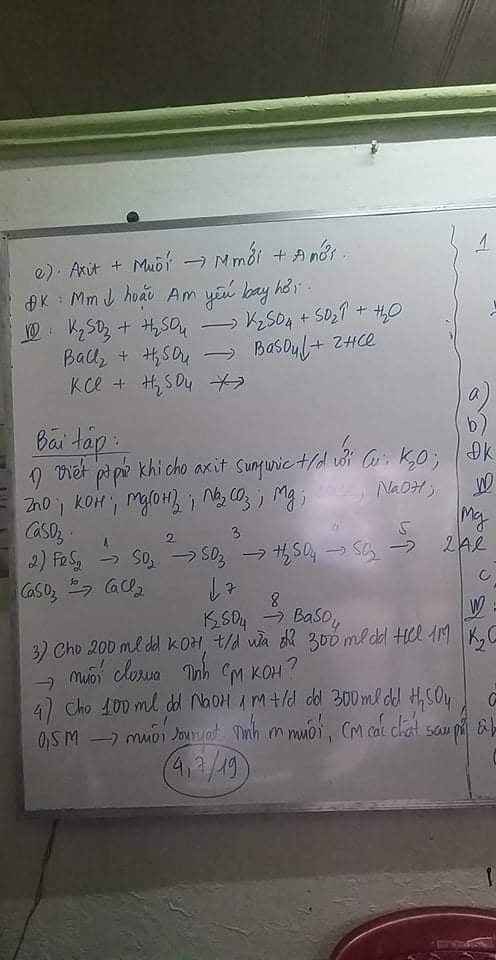 e). Axit + Muối → Mmới + Amới.
ĐK : Mm ↓ hoặc Am yếu bay hơi.
VD : K₂SO₃ + H₂SO₄ → K₂SO₄ + SO₂↑ + H₂O
BaCl₂ + H₂SO₄ → BaSO₄↓ + 2HCl
KCl + H₂SO₄ -x->
Bài tập :
1) Viết ptpứ khi cho axit sunfuric t/d với Cu; K₂O;
ZnO; KOH; Mg(OH)₂; Na₂CO₃; Mg; NaOH;
CaSO₃.
2) FeS₂ 1→ SO₂ 2→ SO₃ 3→ H₂SO₄ → SO₂ 5→
CaSO₃ → CaCl₂ ↓ 7
K₂SO₄ 8→ BaSO₄
3) Cho 200ml dd KOH t/d vừa đủ 300ml dd HCl 1M
→ muối clorua Tính CM KOH?
4) Cho 100ml dd NaOH 1M t/d dd 300ml dd H₂SO₄
0,5M → muối Tính m muối, CM các chất sau pứ
4,7/19
1
a)
b)
ĐK
VD
Mg
2Al
c
VD
K₂